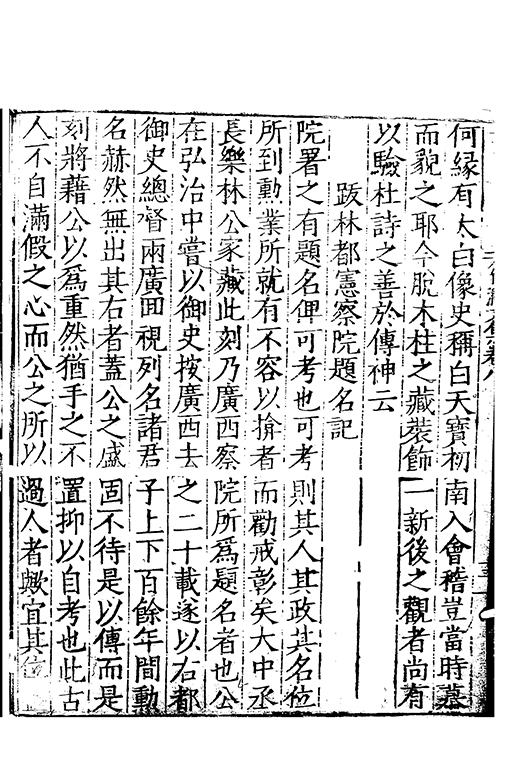 何縁有太白像史稱白天寳初南入會稽豈當時慕
而貌之耶今脫木柱之藏裝飾一新後之觀者尚有
以驗杜詩之善於傳神云
跋林都憲察院題名記
院署之有題名俾可考也可考則其人其政其名位
所到勳業所就有不容以揜者而勸戒彰矣大中丞
長樂林公家藏此刻乃廣西察院所爲題名者也公
在弘治中嘗以御史按廣西去之二十載遂以右都
御史總督兩廣囬視列名諸君子上下百餘年間勳
名赫然無出其右者蓋公之盛固不待是以傳而是
刻將藉公以爲重然猶手之不置抑以自考也此古
人不自滿假之心而公之所以過人者歟宜其位